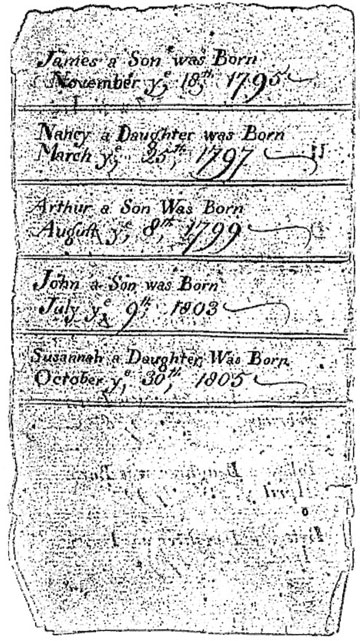 James a Son was Born
November yᵉ 18ᵗʰ 1795
Nancy a Daughter was Born
March yᵉ 25ᵗʰ 1797
Arthur a Son Was Born
August yᵉ 8ᵗʰ 1799
John a Son was Born
July yᵉ 9ᵗʰ 1803
Susannah a Daughter Was Born
October yᵉ 30ᵗʰ 1805